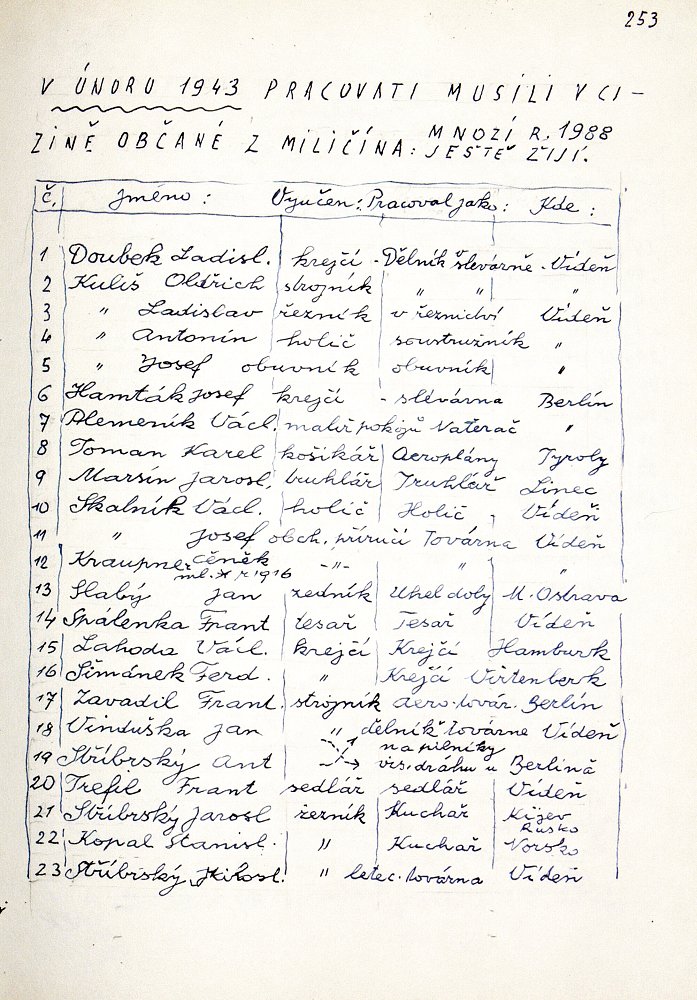 253
V ÚNORU 1943 PRACOVATI MUSÍLI V CI-
ZINĚ OBČANÉ Z MILIČÍNA: MNOZÍ R. 1988
JEŠTĚ ŽIJÍ.
č. Jméno: Vyučen: Pracoval jako: Kde:
1 Doubek Ladisl. krejčí - Dělník slevárně - Vídeň
2 Kuliš Oldřich strojník " " "
3 " Ladislav řezník v řeznictví Vídeň
4 " Antonín holič soustružník "
5 " Josef obuvník obuvník "
6 Hamták Josef krejčí - slévárna Berlín
7 Plemeník Václ. malíř pokojů Natěrač "
8 Toman Karel košíkář Aeroplány Tyroly
9 Marsín Jarosl. truhlář Truhlář Linec
10 Skalník Václ. holič Holič " Vídeň
11 " Josef obch. příručí Továrna Vídeň
12 Kraupner Čeněk -"- " "
ml. * r 1916
13 Slabý Jan zedník Uhel doly M. Ostrava
14 Spálenka Frant tesař Tesař Vídeň
15 Lahoda Václ. krejčí Krejčí Hamburk
16 Šimánek Ferd. " Krejčí Virtenberk
17 Zavadil Frant. strojník aero. továr. Berlín
18 Vinduška Jan " dělník továrne Vídeň
na pilníky
19 Stříbrský Ant vis. dráhu u Berlína
20 Trefil Frant sedlář sedlář Vídeň
21 Stříbrský Jarosl řezník Kuchař Kijev
Rusko
22 Kopal Stanisl. " Kuchař Norsko
23 Stříbrský Milosl. " letec. továrna Vídeň